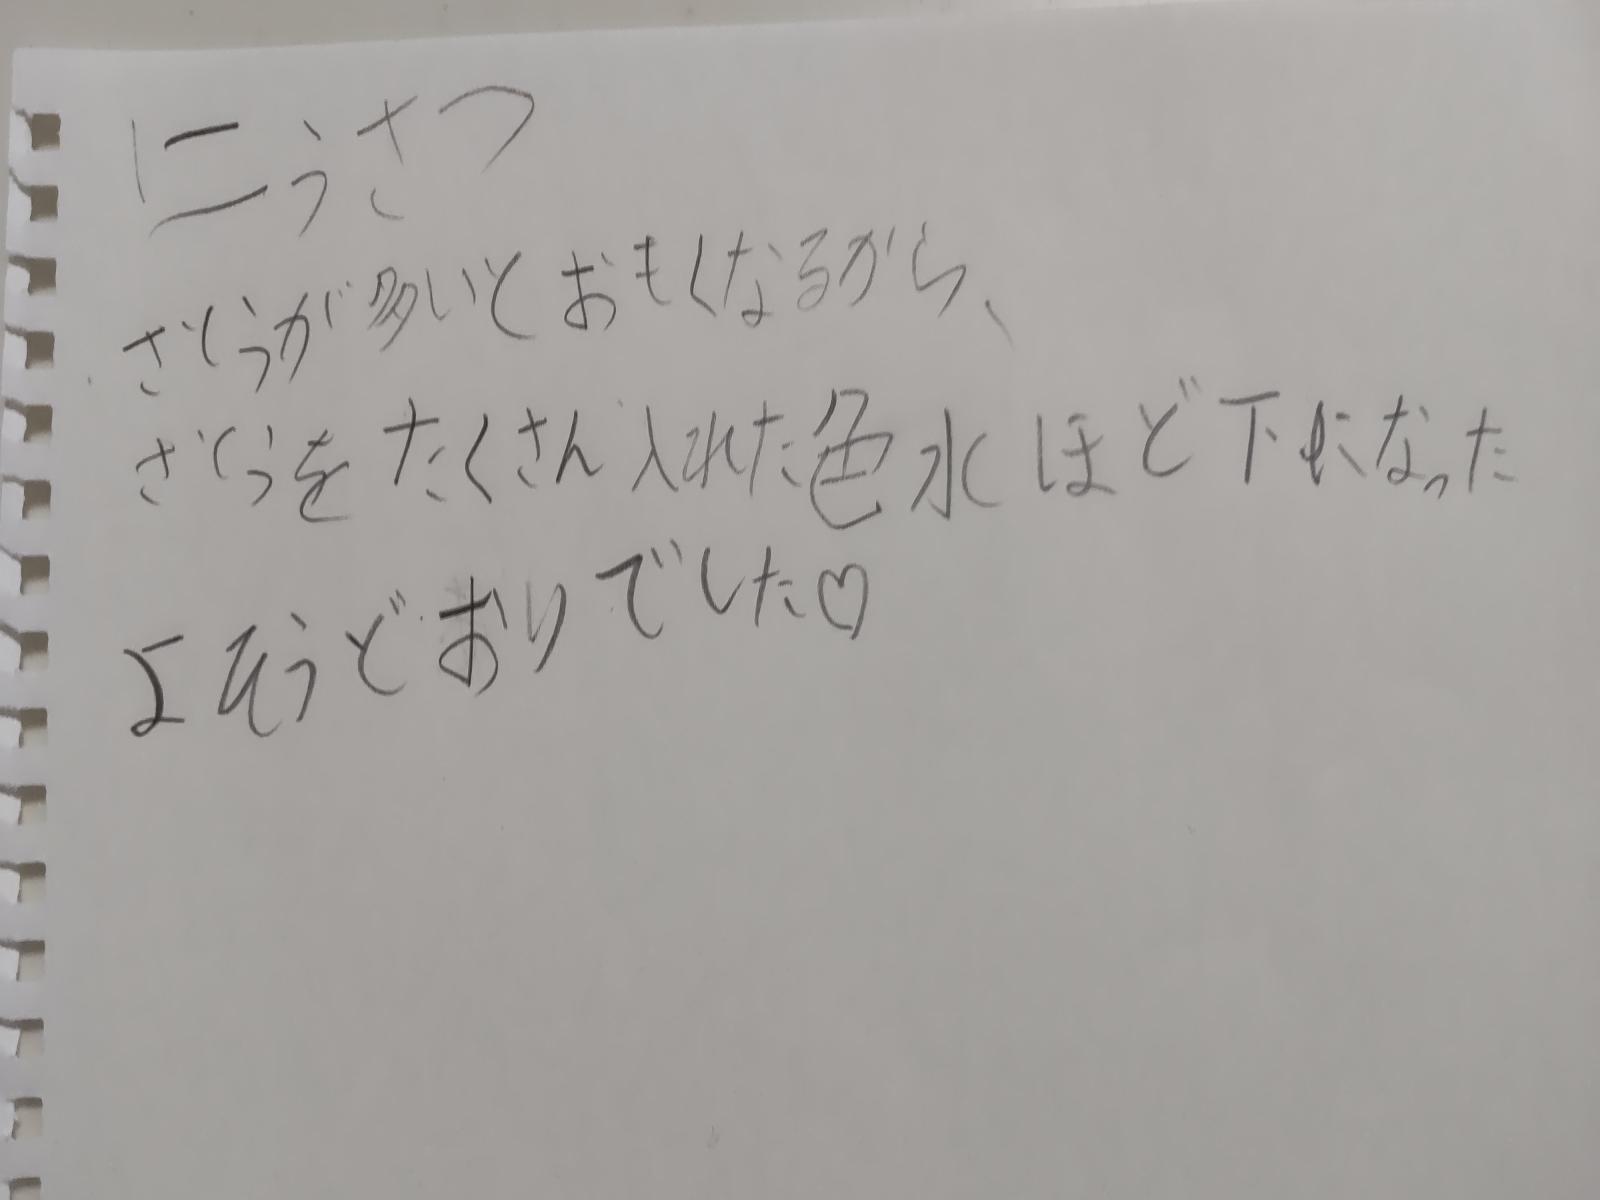 こうさつ
さとうが多いとおもくなるから、
さとうをたくさん入れた色水ほど下になった
よそうどおりでした♡